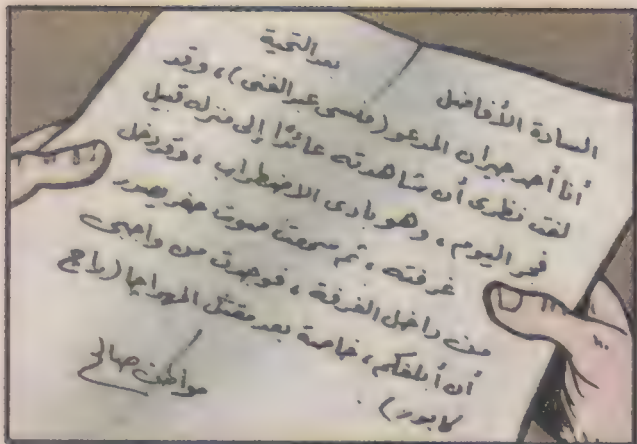 السادة الأفاضل
بعد التحية
أنا أحد جيران المدعو (منسى عبد الغنى)، وقد
لفت نظرى أن شاهدته عائدًا إلى منزله قبيل
فجر اليوم، وهو بادى الاضطراب، وقد دخل
غرفته، ثم سمعت صوت حفر يصدر
من داخل الغرفة، فوجدت من واجبى
أن أبلغكم، خاصة بعد مقتل المهراجا (راج
كابور).
مواطن صالح